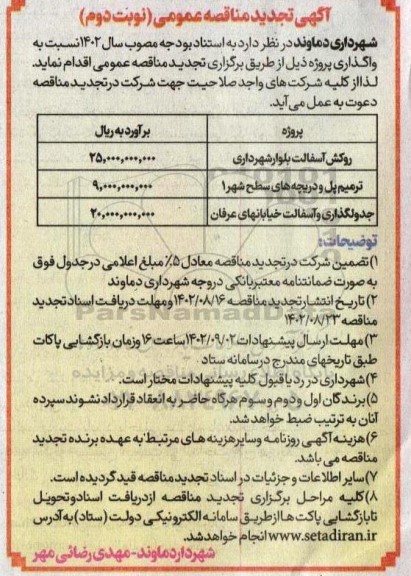 آگهی تجدید مناقصه عمومی (نوبت دوم)
شهرداری دماوند در نظر دارد به استناد بودجه مصوب سال ۱۴۰۲ نسبت به
واگذاری پروژه ذیل از طریق برگزاری تجدید مناقصه عمومی اقدام نماید.
لذا از کلیه شرکت های واجد صلاحیت جهت شرکت در تجدید مناقصه
دعوت به عمل می آید.
پروژه برآورد به ریال
روکش آسفالت بلوار شهرداری ۲۵,۰۰۰,۰۰۰,۰۰۰
ترمیم پل و دریچه های سطح شهر ۱ ۹,۰۰۰,۰۰۰,۰۰۰
جدولگذاری و آسفالت خیابانهای عرفان ۲۰,۰۰۰,۰۰۰,۰۰۰
توضیحات:
۱) تضمین شرکت در تجدید مناقصه معادل ۵٪ مبلغ اعلامی در جدول فوق
به صورت ضمانتنامه معتبر بانکی در وجه شهرداری دماوند
۲) تاریخ انتشار تجدید مناقصه ۱۴۰۲/۰۸/۱۶ و مهلت دریافت اسناد تجدید
مناقصه ۱۴۰۲/۰۸/۲۳
۳) مهلت ارسال پیشنهادات ۱۴۰۲/۰۹/۰۲ ساعت ۱۶ و زمان بازگشایی پاکات
طبق تاریخهای مندرج در سامانه ستاد
۴) شهرداری در رد یا قبول کلیه پیشنهادات مختار است.
۵) برندگان اول و دوم و سوم هرگاه حاضر به انعقاد قرارداد نشوند سپرده
آنان به ترتیب ضبط خواهد شد.
۶) هزینه آگهی روزنامه و سایر هزینه های مرتبط به عهده برنده تجدید
مناقصه می باشد.
۷) سایر اطلاعات و جزئیات در اسناد تجدید مناقصه قید گردیده است.
۸) کلیه مراحل برگزاری تجدید مناقصه از دریافت اسناد و تحویل
تا بازگشایی پاکت ها از طریق سامانه الکترونیکی دولت (ستاد) به آدرس
www.setadiran.ir انجام خواهد شد.
شهردار دماوند - مهدی رضائی مهر